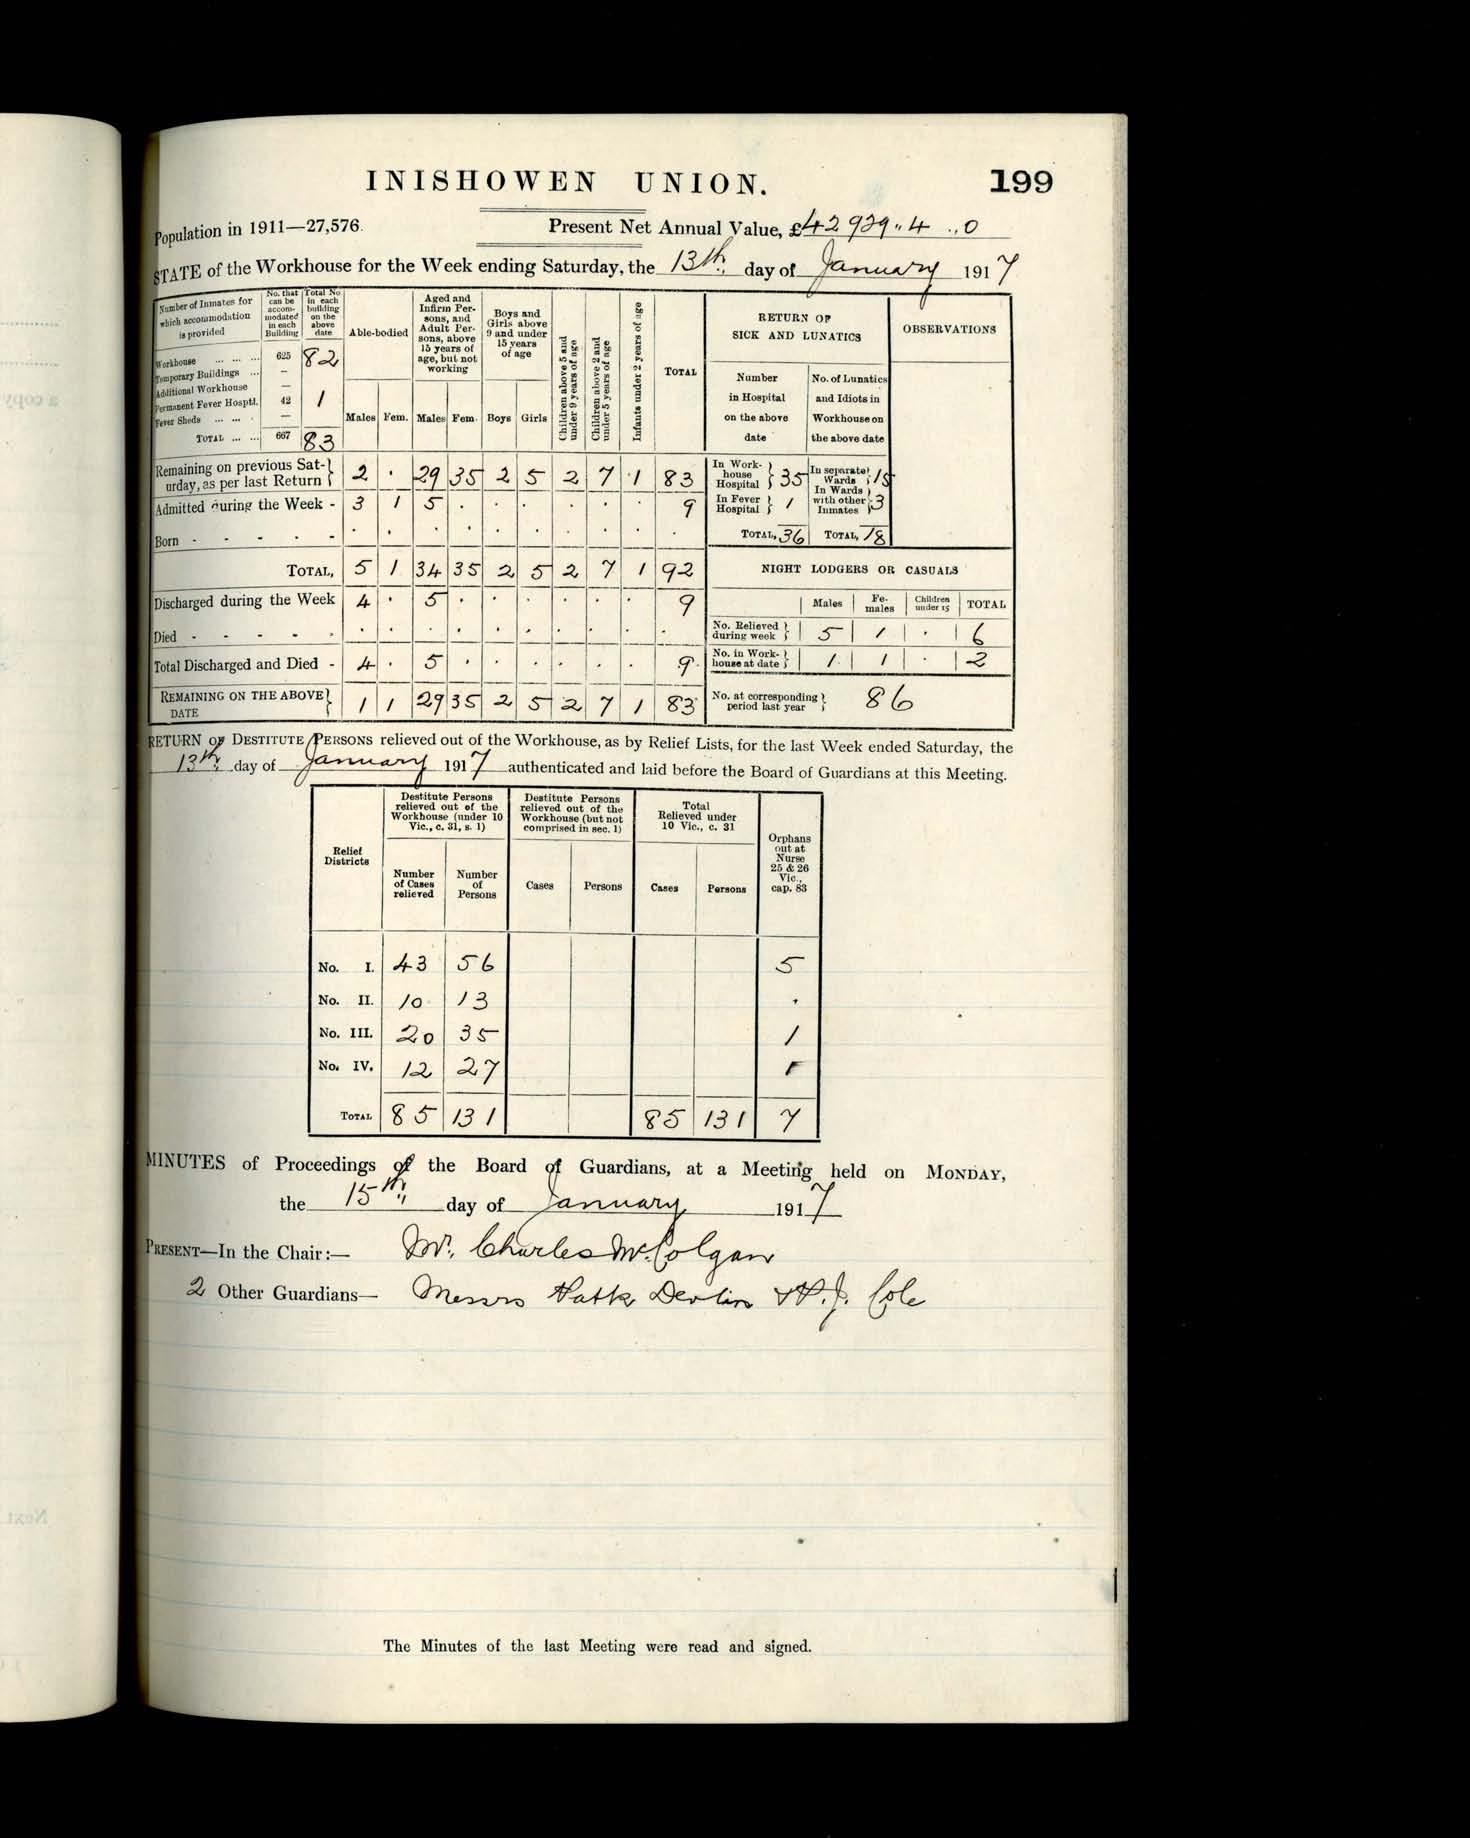 INISHOWEN UNION.
199
Population in 1911—27,576.
Present Net Annual Value, £42 929 " 4 " 0
STATE of the Workhouse for the Week ending Saturday, the 13th day of January 1917
Number of Inmates for which accommodation is provided | No. that can be accommodated in each Building | Total No in each building on the above date
Workhouse ... ... ... 625 82
Temporary Buildings ... —
Additional Workhouse —
Permanent Fever Hosptl. 42 1
Fever Sheds ... ... . —
TOTAL ... ... 667 83
Able-bodied | Aged and Infirm Persons, and Adult Persons, above 15 years of age, but not working | Boys and Girls above 9 and under 15 years of age | Children above 5 and under 9 years of age | Children above 2 and under 5 years of age | Infants under 2 years of age | TOTAL
Males Fem. Males Fem. Boys Girls
Remaining on previous Saturday, as per last Return 2 . 29 35 2 5 2 7 1 83
Admitted during the Week - 3 1 5 . . . . . . 9
Born - - - - - . . . . . . . . . .
TOTAL, 5 1 34 35 2 5 2 7 1 92
Discharged during the Week 4 . 5 . . . . . . 9
Died - - - - . . . . . . . . . . .
Total Discharged and Died - 4 . 5 . . . . . . 9
REMAINING ON THE ABOVE DATE 1 1 29 35 2 5 2 7 1 83
RETURN OF SICK AND LUNATICS
OBSERVATIONS
Number in Hospital on the above date
No. of Lunatics and Idiots in Workhouse on the above date
In Workhouse Hospital 35
In separate Wards 15
In Fever Hospital 1
In Wards with other Inmates 3
TOTAL, 36 TOTAL, 18
NIGHT LODGERS OR CASUALS
Males Females Children under 15 TOTAL
No. Relieved during week 5 1 . 6
No. in Workhouse at date 1 1 . 2
No. at corresponding period last year 86
RETURN OF DESTITUTE PERSONS relieved out of the Workhouse, as by Relief Lists, for the last Week ended Saturday, the
13th day of January 1917 authenticated and laid before the Board of Guardians at this Meeting.
Relief Districts | Destitute Persons relieved out of the Workhouse (under 10 Vic., c. 31, s. 1) | Destitute Persons relieved out of the Workhouse (but not comprised in sec. 1) | Total Relieved under 10 Vic., c. 31 | Orphans out at Nurse 25 & 26 Vic., cap. 83
Number of Cases relieved | Number of Persons | Cases | Persons | Cases | Persons
No. I. 43 56 5
No. II. 10 13 .
No. III. 20 35 1
No. IV. 12 27 1
TOTAL 85 131 85 131 7
MINUTES of Proceedings of the Board of Guardians, at a Meeting held on MONDAY,
the 15th day of January 1917
PRESENT—In the Chair:— Mr. Charles McColgan
2 Other Guardians— Messrs Patk Devlin & P. J. Cole
The Minutes of the last Meeting were read and signed.